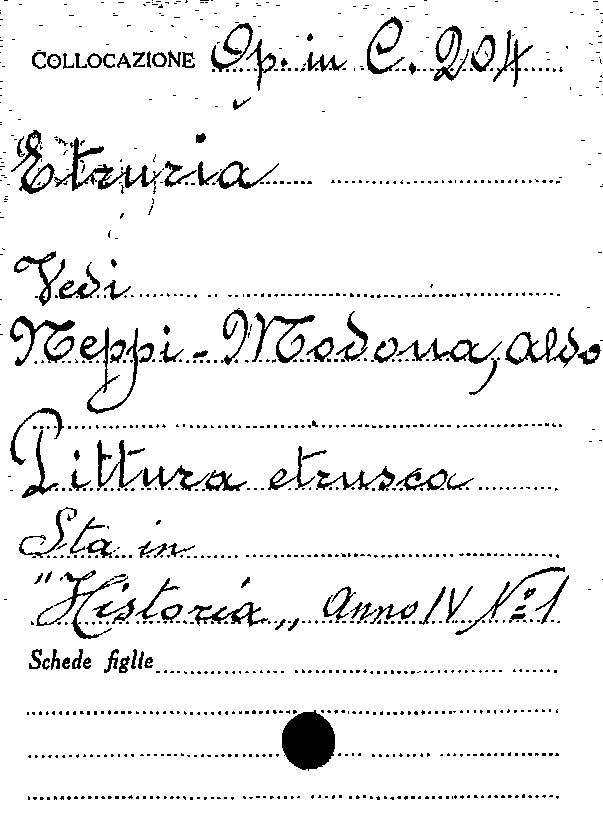 COLLOCAZIONE Op. in C. 204
Etruria
Vedi
Neppi-Modona, Aldo
Pittura etrusca
Sta in
"Historia„ Anno IV Nº 1
Schede figlie